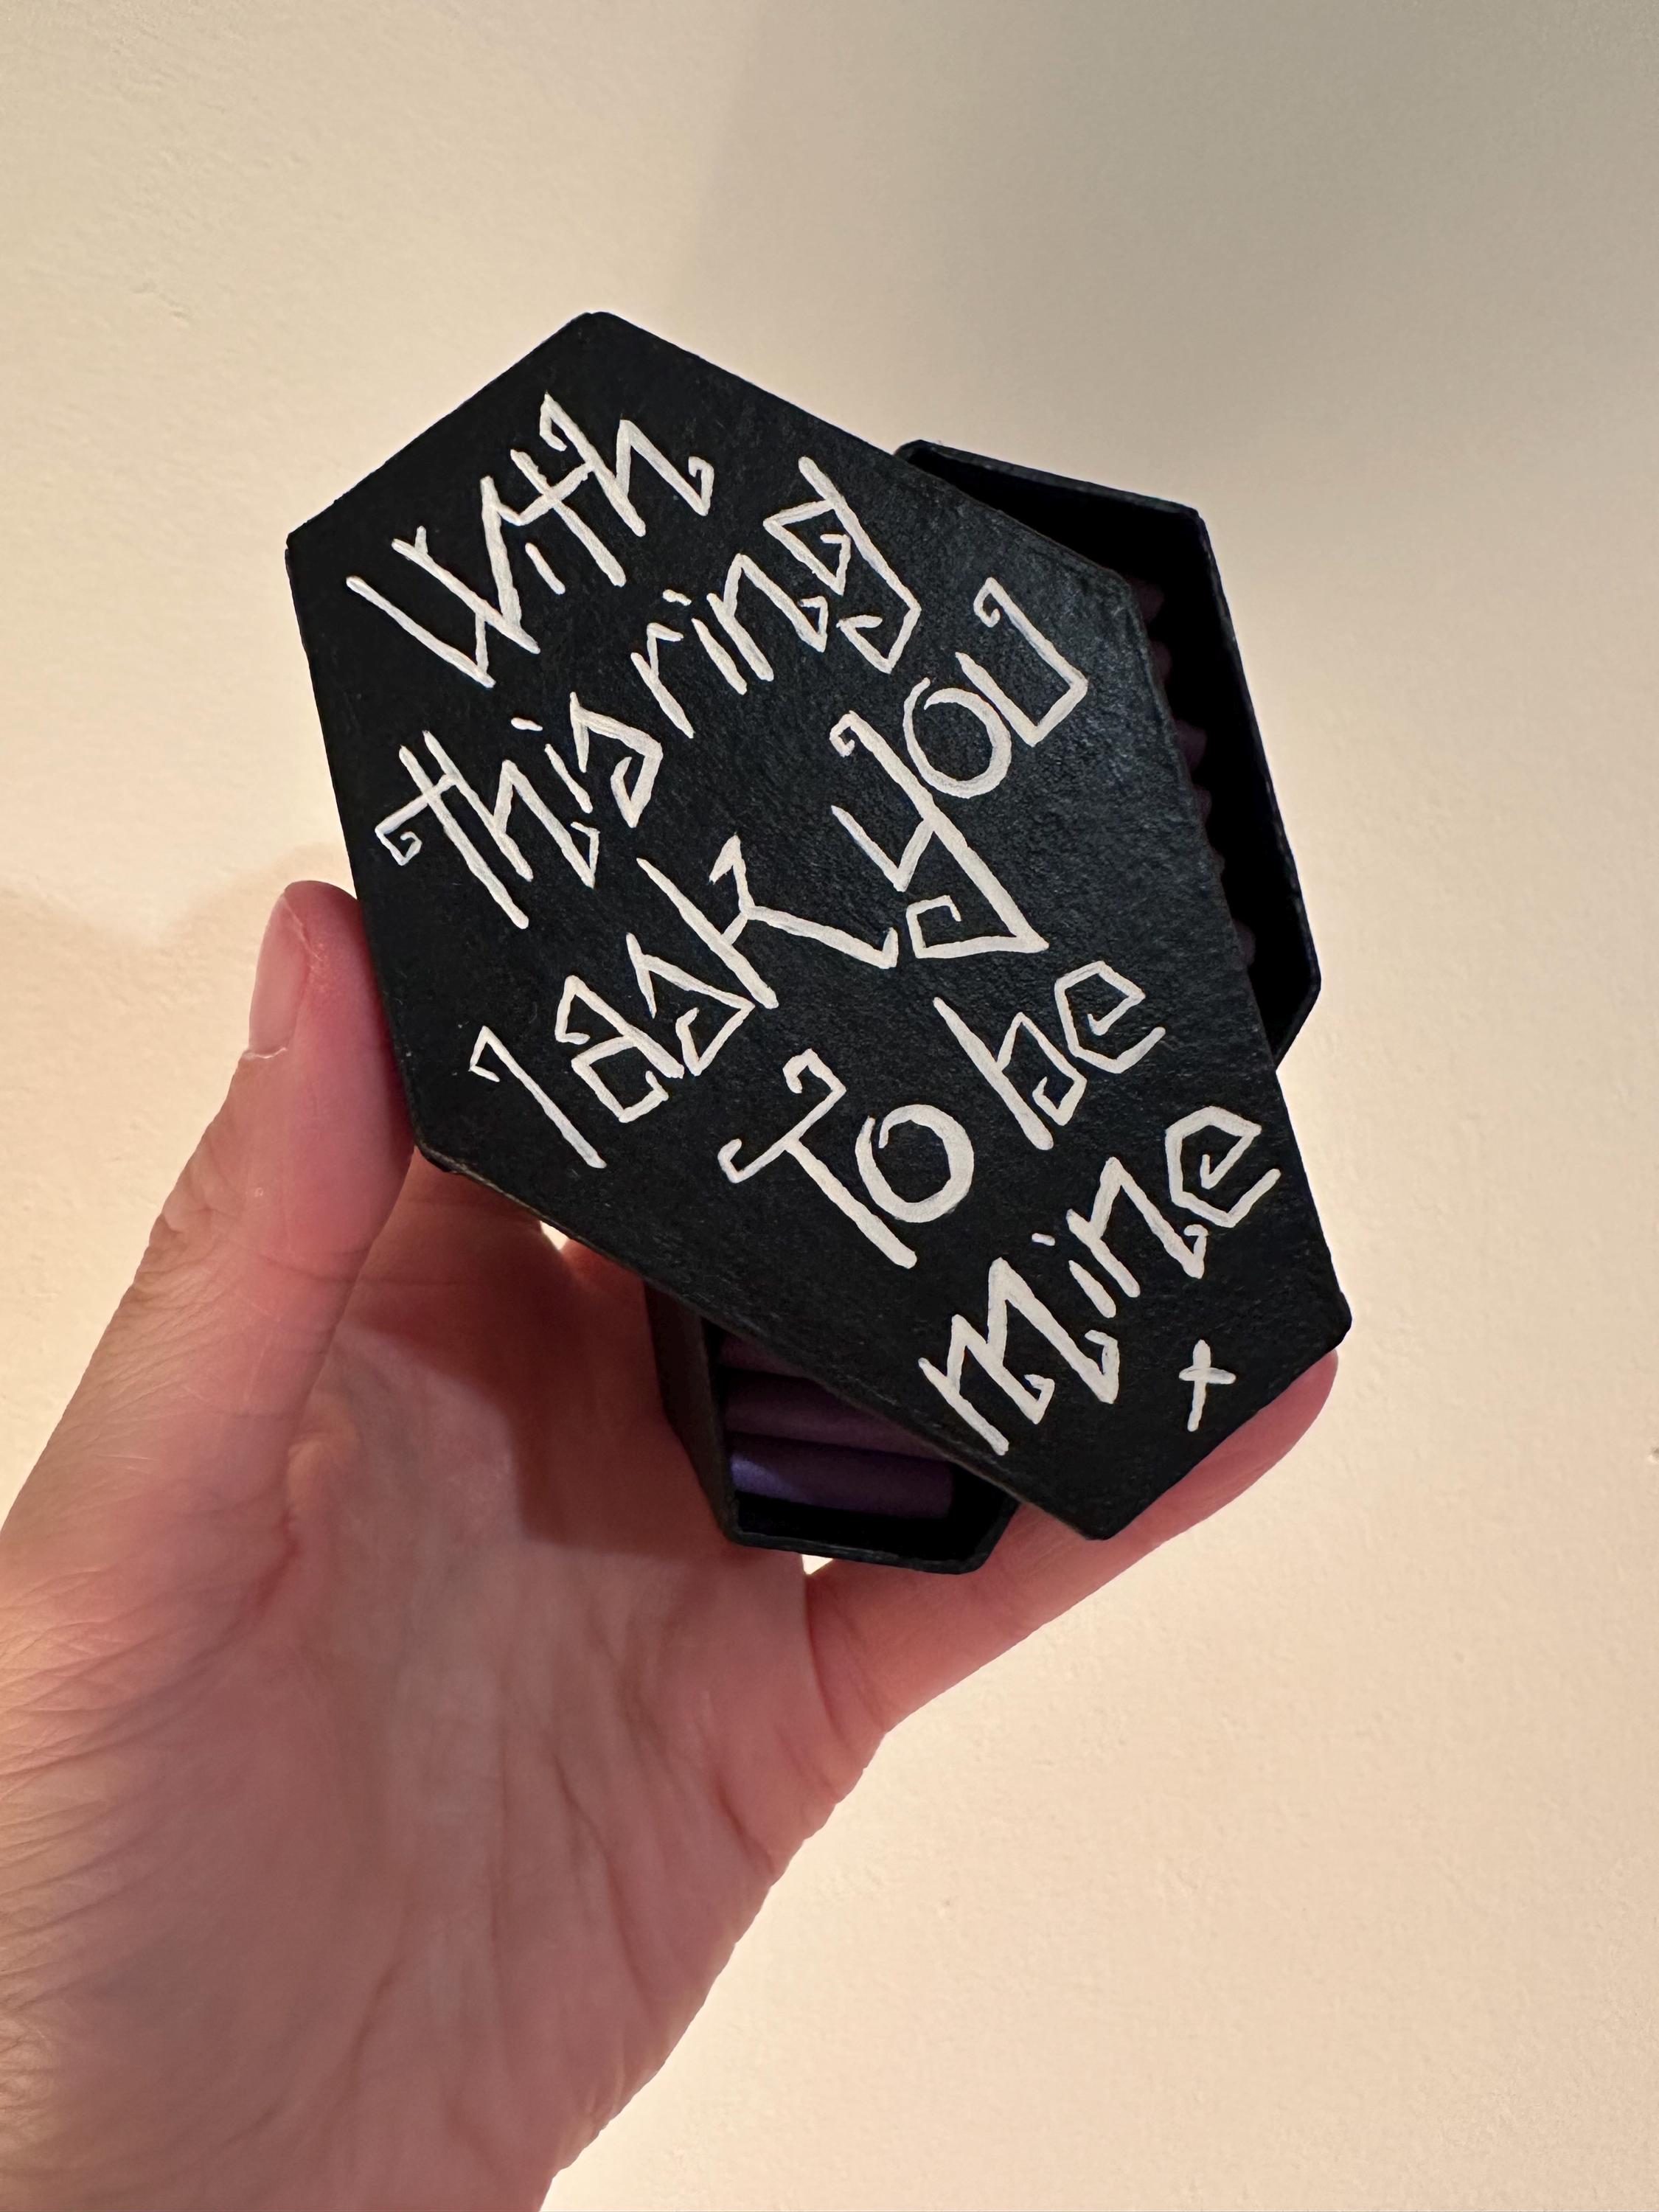 With
this ring
I ask you
To be
mine